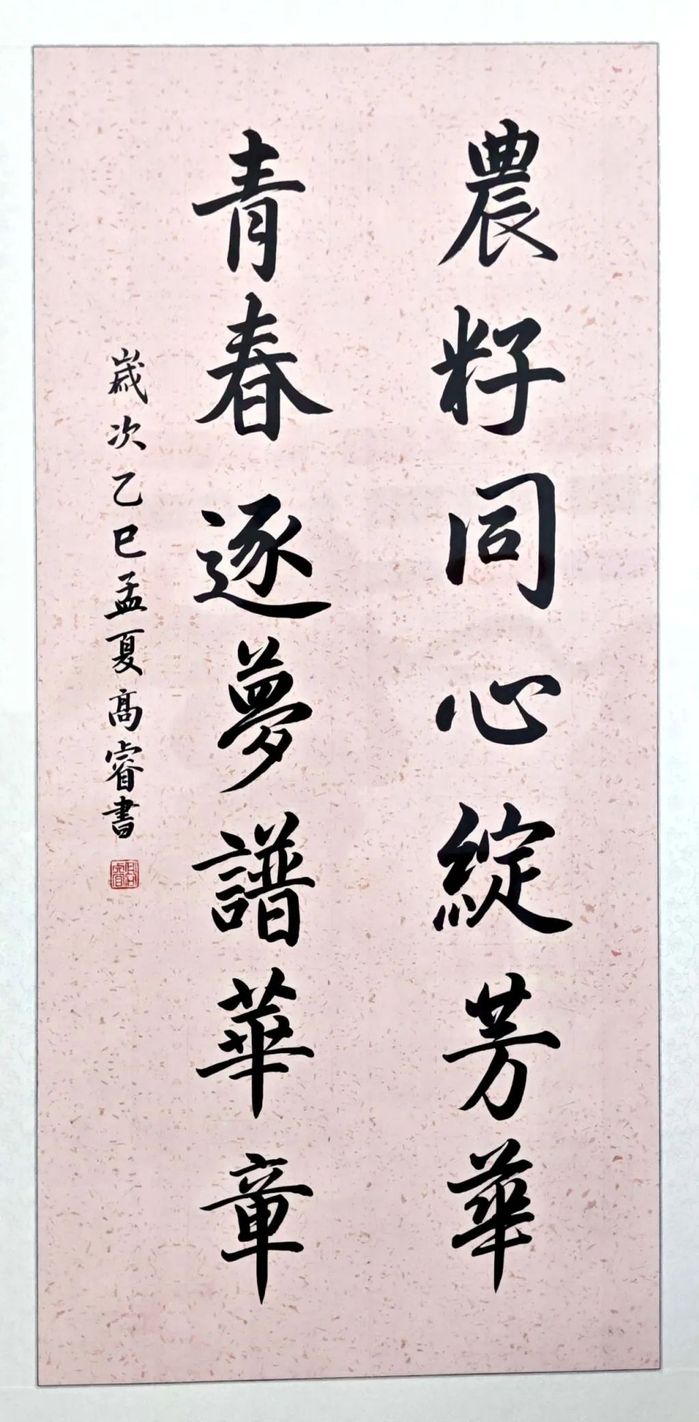 農籽同心綻芳華
青春逐夢譜華章
歲次乙巳孟夏高睿書